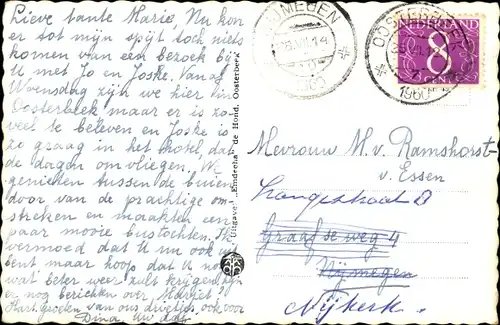 Lieve tante Marie. Nu kon
er tot mijn spijt toch niets
komen van een bezoek bij
U met Jo en Joske. Vanaf
Woensdag zijn we hier in
Oosterbeek, maar er is zo
veel te beleven en Joske is
zo graag in het hotel, dat
de dagen om vliegen. We
genieten tussen de buien
door van de prachtige om-
streken en maakten een
paar mooie bustochten. Ik
vermoed dat U nu ook
bent maar hoop dat U nu
wat beter weer zult krijgen
er nog berichten over Margiet?
Hart. groeten van ons drietjes ook voor
Dina, uw
Uitgave: „Emdeeha" de Hond, Oosterbeek
NIJMEGEN
14
1960
OOSTERBEEK
1960
NEDERLAND
8
CENT
Mevrouw M. v. Ramshorst-
v. Essen
Langestraat 8
Graafseweg 4
Nijmegen
Nijkerk